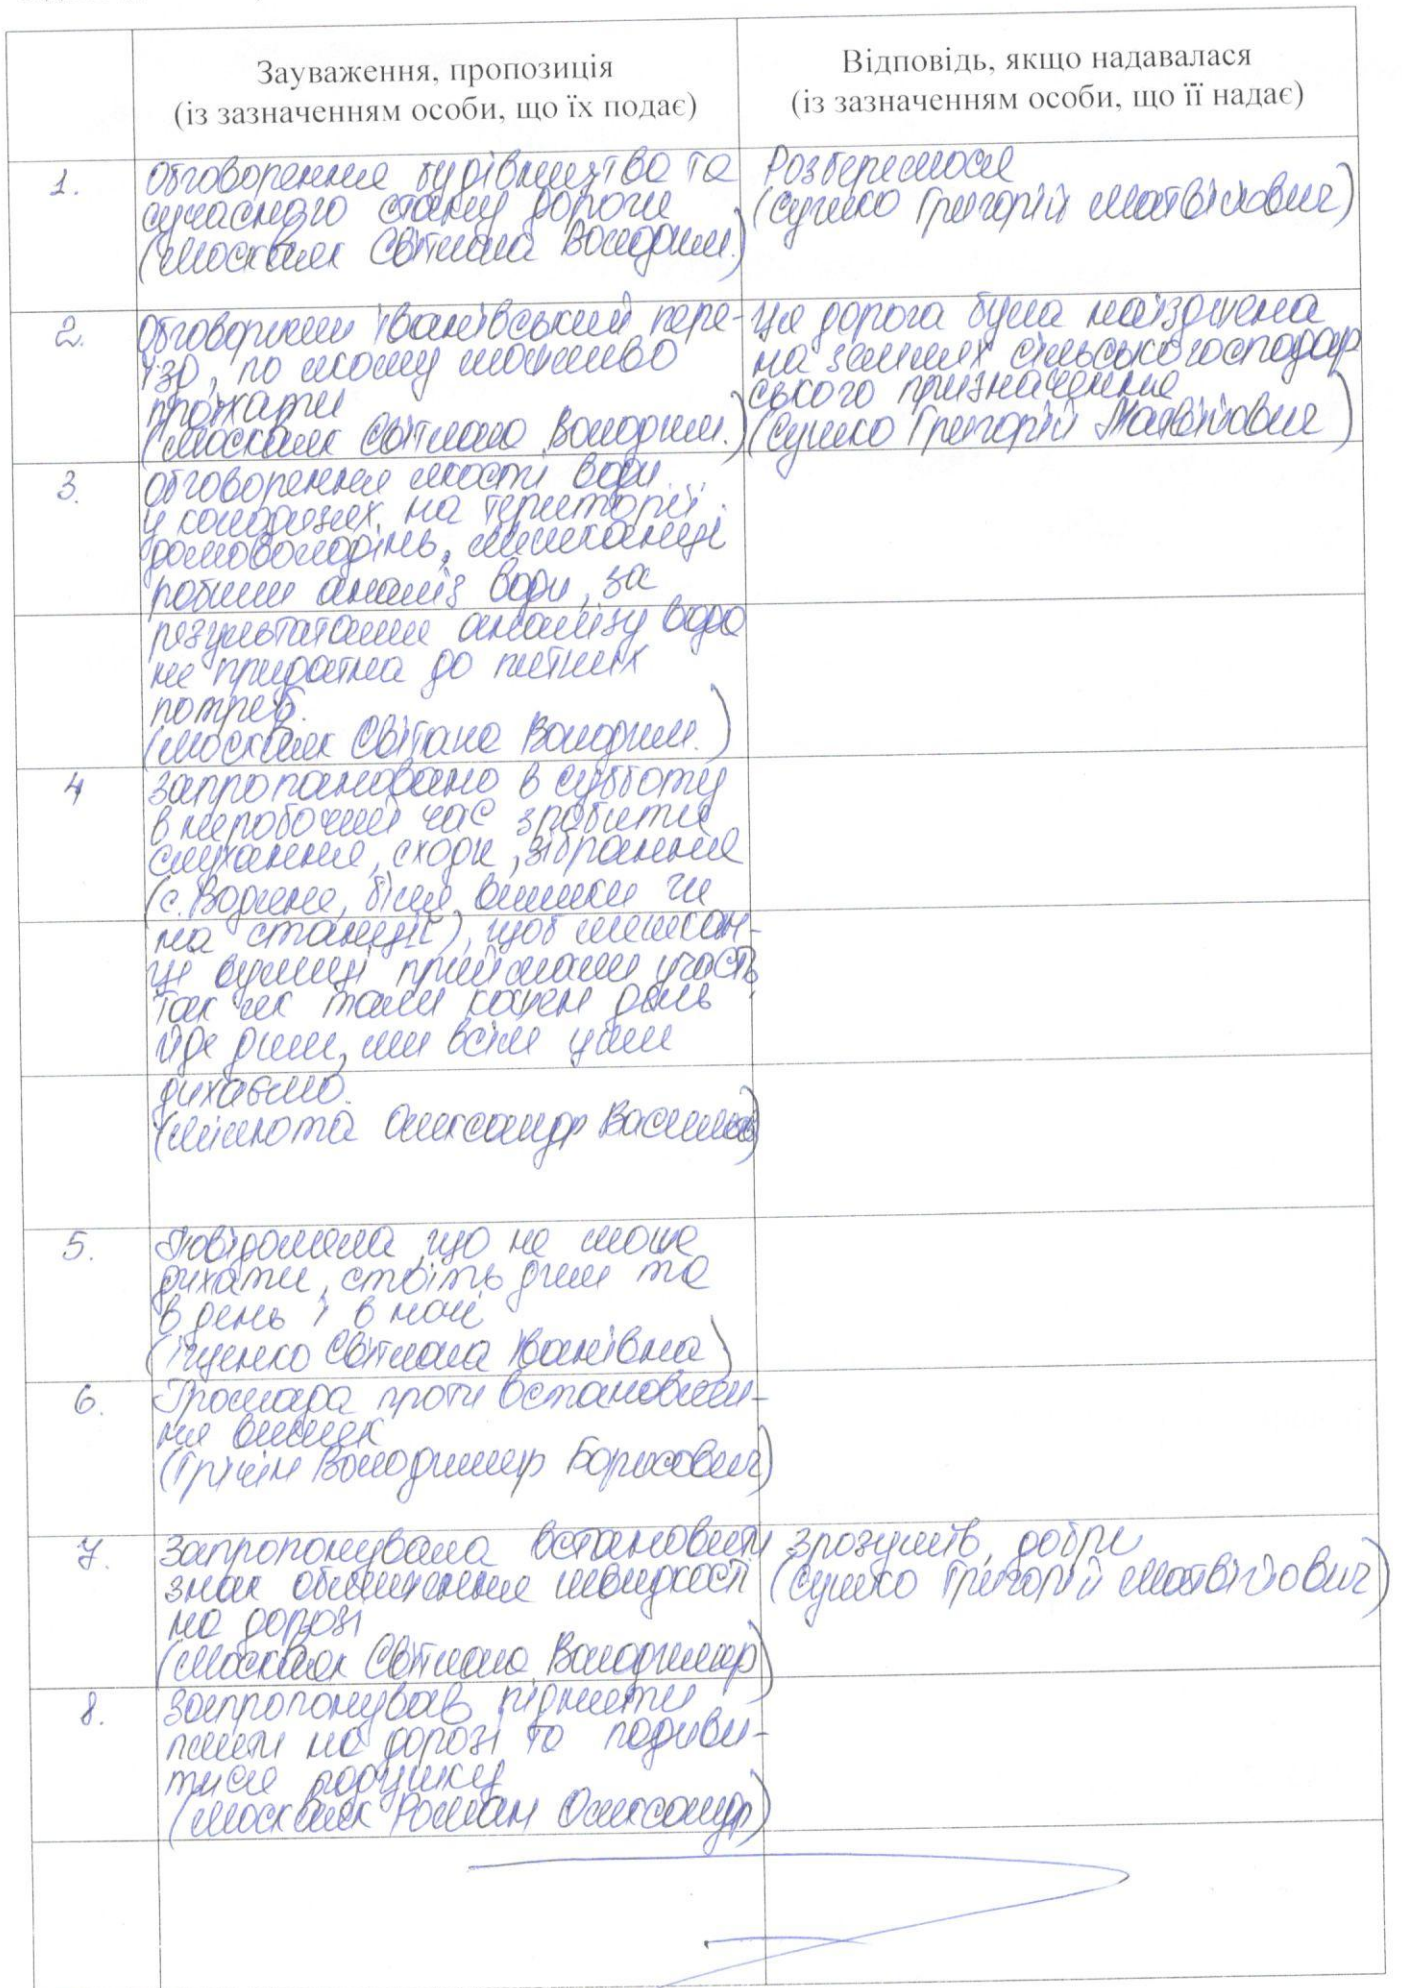 Зауваження, пропозиція
(із зазначенням особи, що їх подає)
Відповідь, якщо надавалася
(із зазначенням особи, що її надає)
1.
Обговорення будівництва та
сучасного стану дороги
(Москвяк Світлана Володим.)
Розберемося
(Сушко Григорій Матвійович)
2.
Обговорили Іванівський пере-
їзд, по якому можливо
проїхати
(Москвяк Світлана Володим.)
Ця дорога була наїзджена
на землях сільськогосподар
ського призначення
(Сушко Григорій Матвійович)
3.
Обговорення якості води
у колодязях, на території
домоволодінь, мешканці
робили аналіз води, за
результатами аналізу вода
не придатна до питних
потреб.
(Москвяк Світлана Володим.)
4
Запропоновано в субботу
в неробочий час зробити
слухання, сходи, зібрання
(с. Водяне, біля вишки чи
на станції), щоб мешкан-
ці вулиці приймали участь,
так як там кожен день
йде дим, ми всім цим
дихаємо.
(Олександр
5.
Повідомила, що не може
дихати, стоїть дим та
в день і в ночі
(Іщенко Світлана Іванівна)
6.
Громада проти встановлен-
ня вишок
(Володимир Борисович)
7.
Запропонувала встановити
знак обмеження швидкості
на дорозі
(Москвяк Світлана Володимир)
зрозумів, добре
(Сушко Григорій Матвійович)
8.
Запропонував підняти
плити на дорозі та подиви-
тися подушку
(Москвяк Роман Олександр)